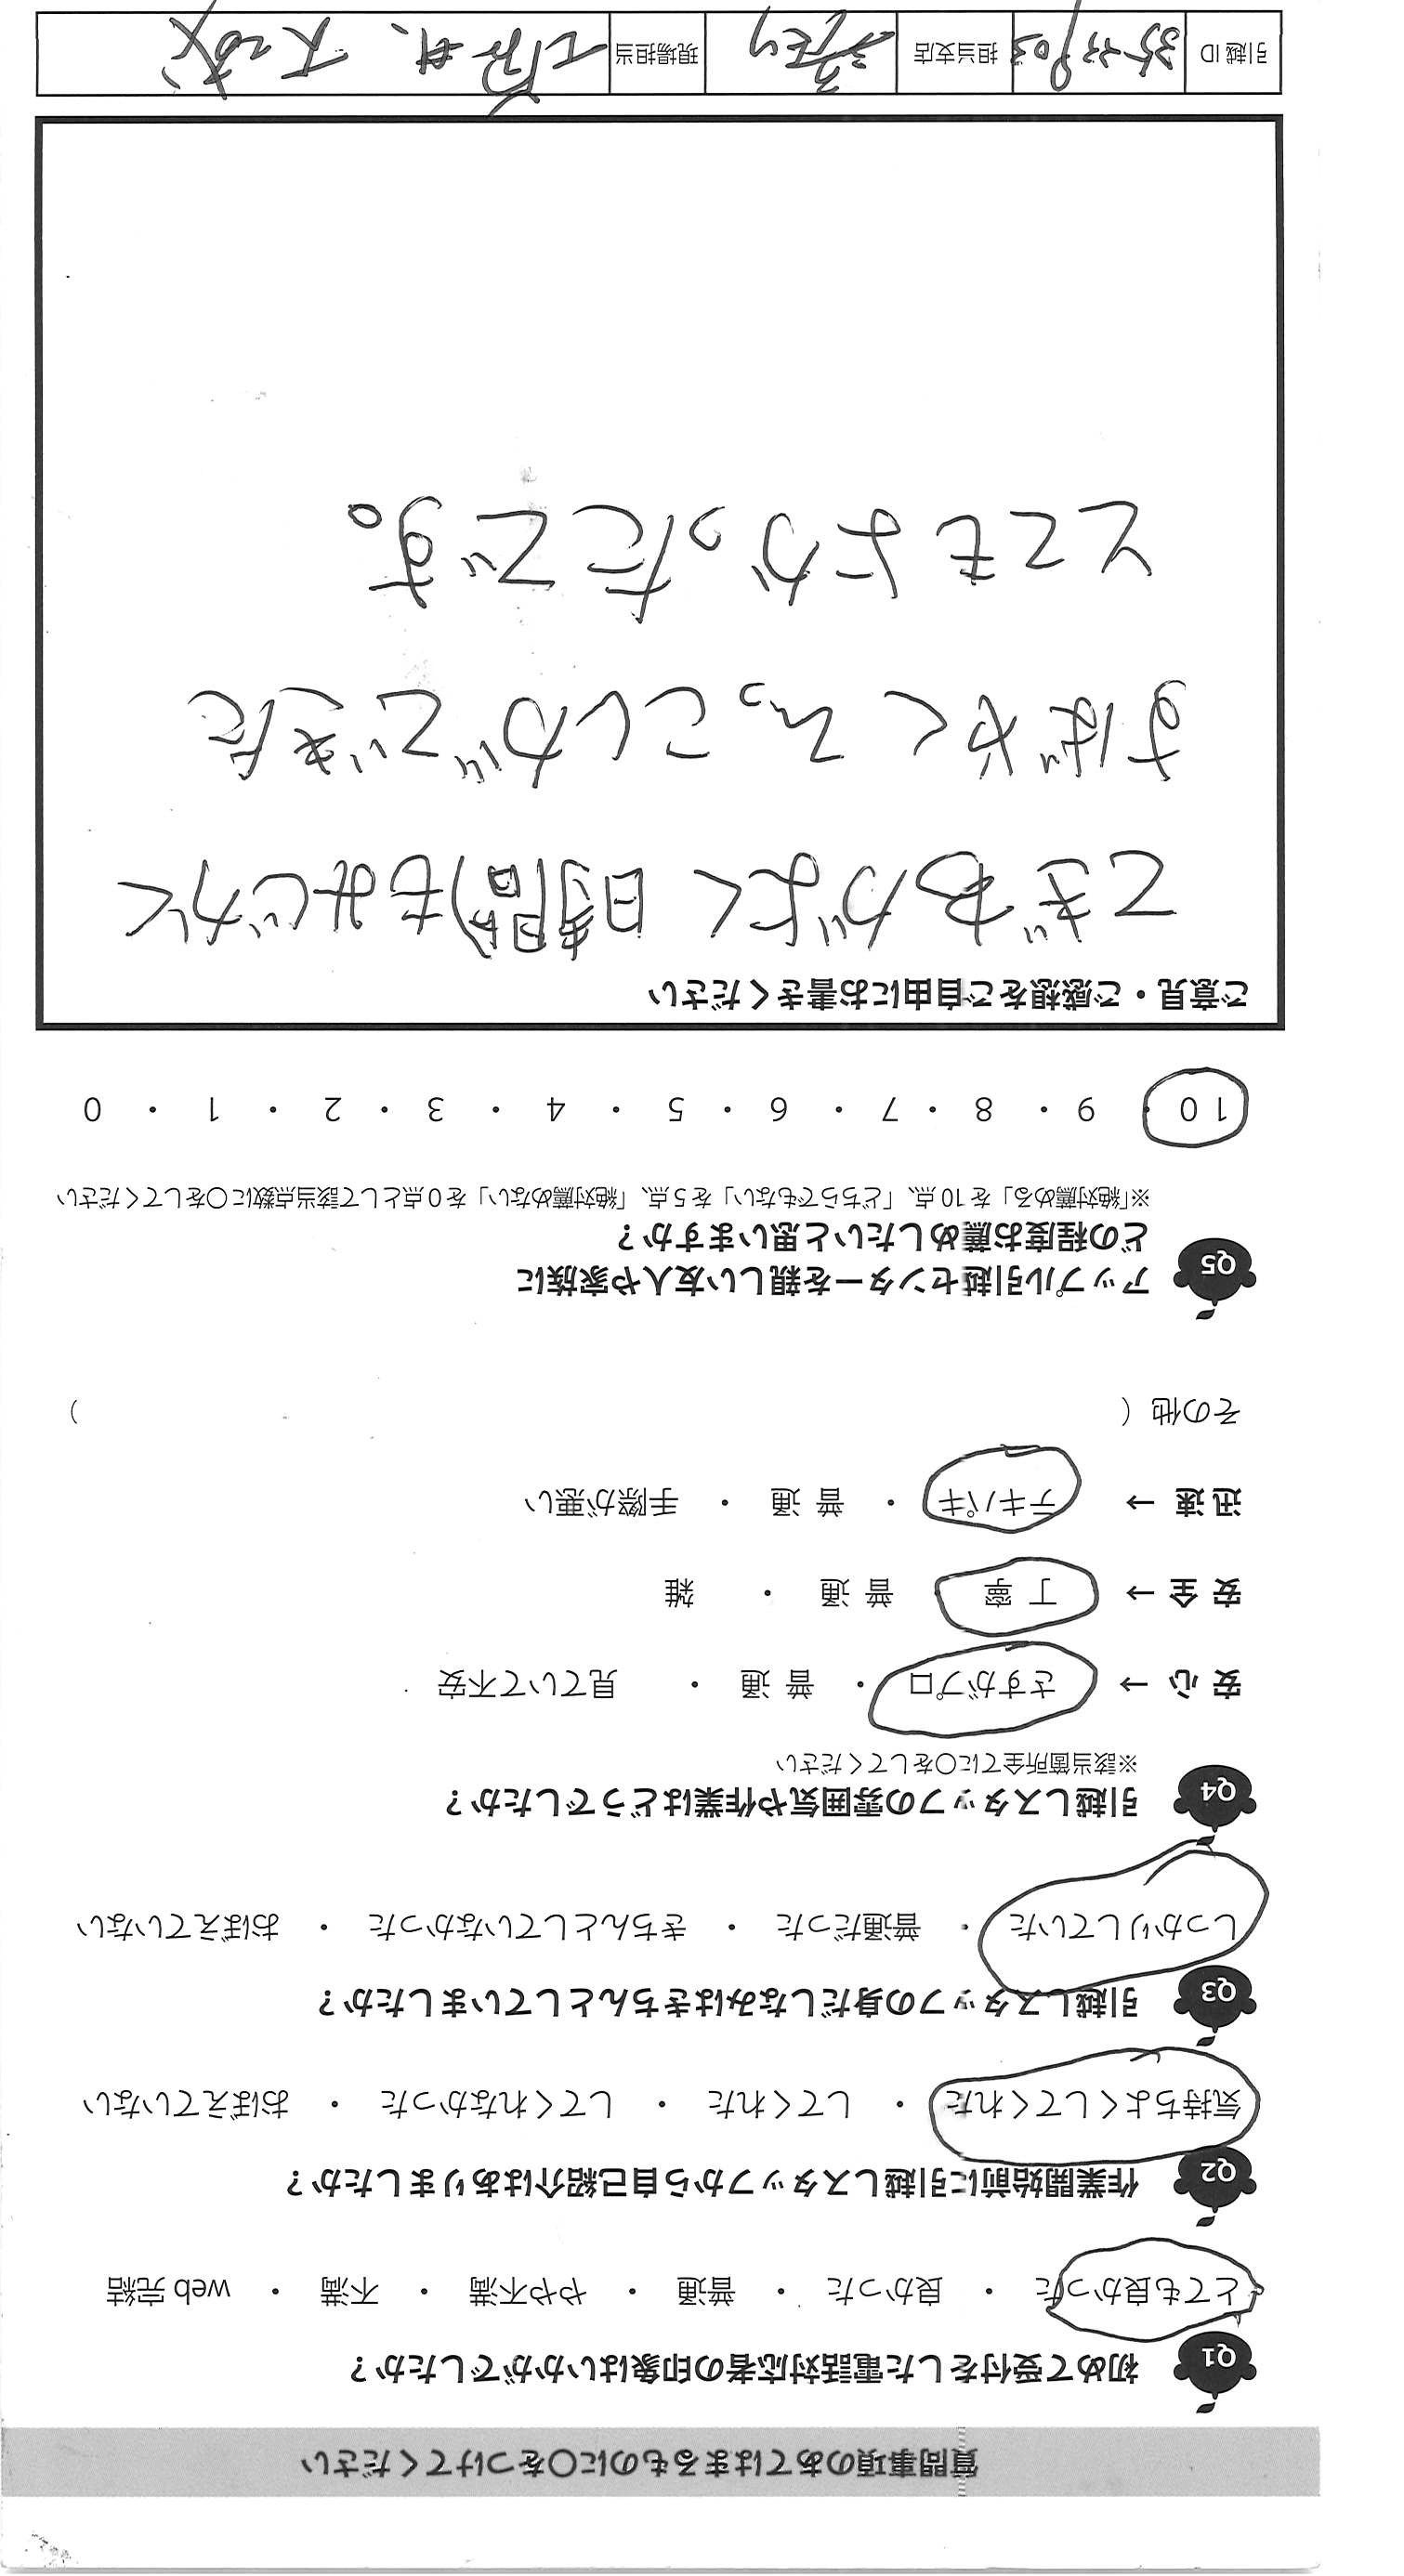 質問事項のあてはまるものに○をつけてください
Q1 初めて受付をした電話対応者の印象はいかがでしたか？
とても良かった ・ 良かった ・ 普通 ・ やや不満 ・ 不満 ・ web 完結
Q2 作業開始前に引越しスタッフから自己紹介はありましたか？
気持ちよくしてくれた ・ してくれた ・ してくれなかった ・ おぼえていない
Q3 引越しスタッフの身だしなみはきちんとしていましたか？
しっかりしていた ・ 普通だった ・ きちんとしていなかった ・ おぼえていない
Q4 引越しスタッフの雰囲気や作業はどうでしたか？
※該当箇所全てに○をしてください
安心 → さすがプロ ・ 普通 ・ 見ていて不安
安全 → 丁寧 ・ 普通 ・ 雑
迅速 → テキパキ ・ 普通 ・ 手際が悪い
その他（ ）
Q5 アップル引越センターを親しい友人や家族に
どの程度お薦めしたいと思いますか？
※「絶対薦める」を10点、「どちらでもない」を5点、「絶対薦めない」を0点として該当点数に○をしてください
10 ・ 9 ・ 8 ・ 7 ・ 6 ・ 5 ・ 4 ・ 3 ・ 2 ・ 1 ・ 0
ご意見・ご感想をご自由にお書きください
てぎわがよく 時間もみじかく
すばやくひっこしができた
とてもよかったです。
引越 ID 担当支店 現場担当